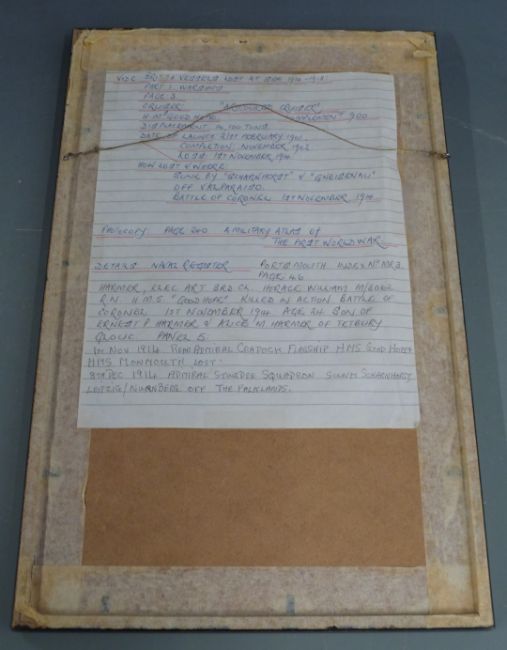 VIDE BRITISH VESSELS LOST AT SEA 1914-18.
PART 1. WARSHIPS
PAGE 3.
CRUISER "ARMOURED CRUISER"
H.M. "GOOD HOPE" COMPLEMENT 900
DISPLACEMENT 14,100 TONS
DATE OF LAUNCH 21ST FEBRUARY 1901
COMPLETION NOVEMBER 1902
LOSS 1ST NOVEMBER 1914
HOW LOST & WHERE
SUNK BY "SCHARNHORST" & "GNEISENAU"
OFF VALPARAISO.
BATTLE OF CORONEL 1ST NOVEMBER 1914
PHOTOCOPY PAGE 240 A MILITARY ATLAS OF
THE FIRST WORLD WAR
DETAILS NAVAL REGISTER PORTSMOUTH INDEX No MR3
PAGE 46
HARMER, ELEC ART 3RD CL. HORACE WILLIAM
R.N. H.M.S. "GOOD HOPE" KILLED IN ACTION BATTLE OF
CORONEL 1ST NOVEMBER 1914 AGE 24. SON OF
ERNEST P HARMER & ALICE M. HARMER OF TETBURY
GLOUC. PANEL 5
1ST NOV 1914 REAR ADMIRAL CRADOCK FLAGSHIP HMS GOOD HOPE &
HMS MONMOUTH LOST.
8TH DEC 1914 ADMIRAL STURDEE SQUADRON SUNK SCHARNHORST
LEIPZIG/NURNBERG OFF THE FALKLANDS.